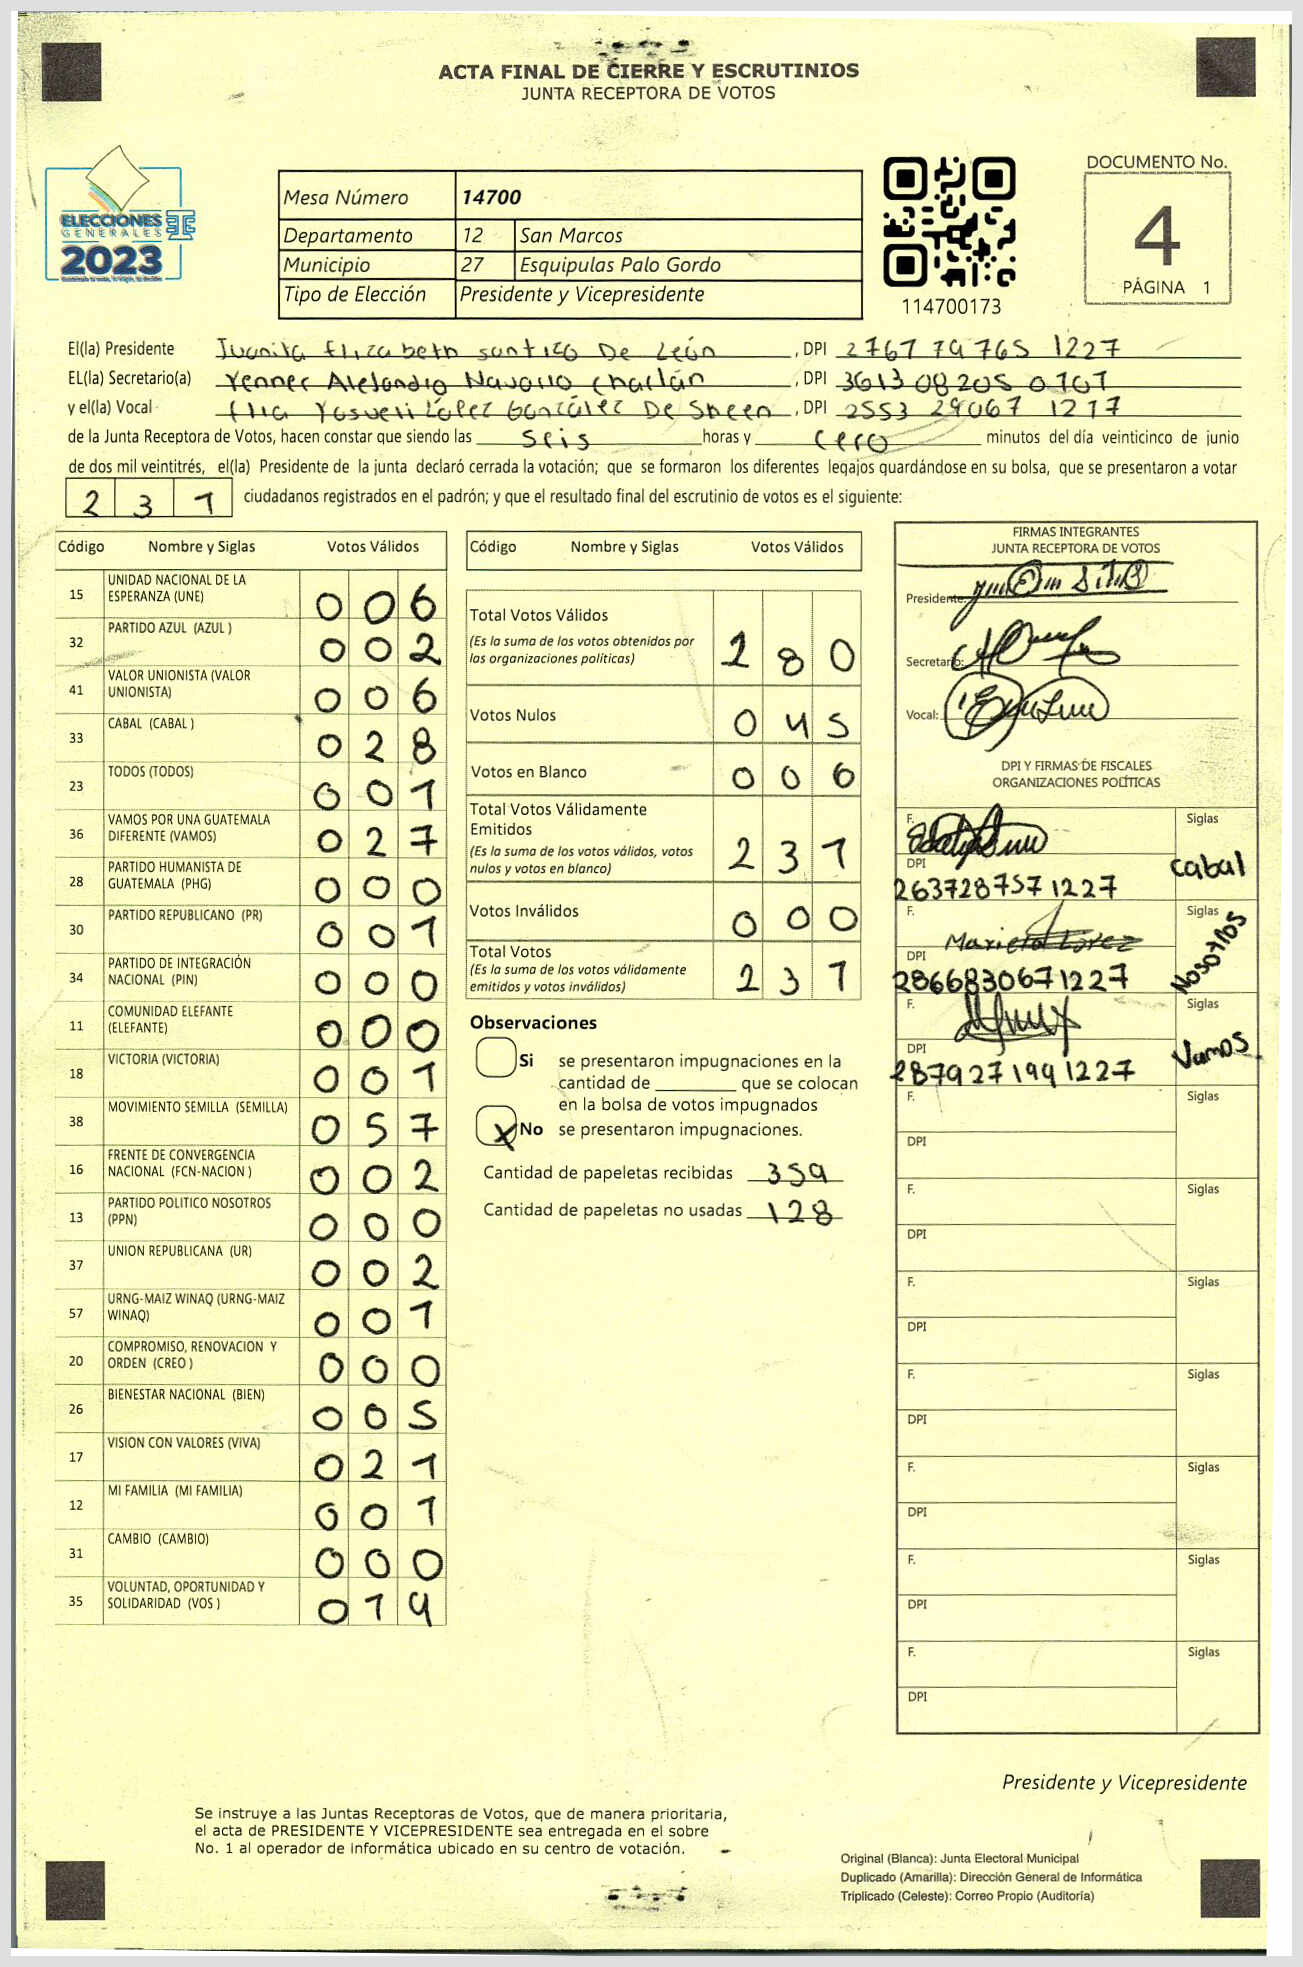 ACTA FINAL DE CIERRE Y ESCRUTINIOS
JUNTA RECEPTORA DE VOTOS
ELECCIONES
GENERALES
2023
Mesa Número 14700
Departamento 12 San Marcos
Municipio 27 Esquipulas Palo Gordo
Tipo de Elección Presidente y Vicepresidente
114700173
DOCUMENTO No.
4
PÁGINA 1
El(la) Presidente Juanita Elizabeth De León, DPI 2767 79765 1227
EL(la) Secretario(a) Yenner Alejandro Navarro, DPI 3613 08205 0101
y el(la) Vocal López González De, DPI 2553 29067 1217
de la Junta Receptora de Votos, hacen constar que siendo las seis horas y cero minutos del día veinticinco de junio
de dos mil veintitrés, el(la) Presidente de la junta declaró cerrada la votación; que se formaron los diferentes legajos guardándose en su bolsa, que se presentaron a votar
2 3 1 ciudadanos registrados en el padrón; y que el resultado final del escrutinio de votos es el siguiente:
Código Nombre y Siglas Votos Válidos
15 UNIDAD NACIONAL DE LA ESPERANZA (UNE) 0 0 6
32 PARTIDO AZUL (AZUL ) 0 0 2
41 VALOR UNIONISTA (VALOR UNIONISTA) 0 0 6
33 CABAL (CABAL ) 0 2 8
23 TODOS (TODOS) 0 0 1
36 VAMOS POR UNA GUATEMALA DIFERENTE (VAMOS) 0 2 7
28 PARTIDO HUMANISTA DE GUATEMALA (PHG) 0 0 0
30 PARTIDO REPUBLICANO (PR) 0 0 1
34 PARTIDO DE INTEGRACIÓN NACIONAL (PIN) 0 0 0
11 COMUNIDAD ELEFANTE (ELEFANTE) 0 0 0
18 VICTORIA (VICTORIA) 0 0 1
38 MOVIMIENTO SEMILLA (SEMILLA) 0 5 7
16 FRENTE DE CONVERGENCIA NACIONAL (FCN-NACION ) 0 0 2
13 PARTIDO POLITICO NOSOTROS (PPN) 0 0 0
37 UNION REPUBLICANA (UR) 0 0 2
57 URNG-MAIZ WINAQ (URNG-MAIZ WINAQ) 0 0 1
20 COMPROMISO, RENOVACION Y ORDEN (CREO ) 0 0 0
26 BIENESTAR NACIONAL (BIEN) 0 0 5
17 VISION CON VALORES (VIVA) 0 2 1
12 MI FAMILIA (MI FAMILIA) 0 0 1
31 CAMBIO (CAMBIO) 0 0 0
35 VOLUNTAD, OPORTUNIDAD Y SOLIDARIDAD (VOS ) 0 1 9
Código Nombre y Siglas Votos Válidos
Total Votos Válidos 1 8 0
(Es la suma de los votos obtenidos por
las organizaciones políticas)
Votos Nulos 0 4 5
Votos en Blanco 0 0 6
Total Votos Válidamente
Emitidos 2 3 1
(Es la suma de los votos válidos, votos
nulos y votos en blanco)
Votos Inválidos 0 0 0
Total Votos 2 3 1
(Es la suma de los votos válidamente
emitidos y votos inválidos)
Observaciones
Si se presentaron impugnaciones en la
cantidad de ________ que se colocan
en la bolsa de votos impugnados
X No se presentaron impugnaciones.
Cantidad de papeletas recibidas 359
Cantidad de papeletas no usadas 128
FIRMAS INTEGRANTES
JUNTA RECEPTORA DE VOTOS
Presidente:
Secretario:
Vocal:
DPI Y FIRMAS DE FISCALES
ORGANIZACIONES POLÍTICAS
F. Siglas
Cabal
DPI
2637287571227
F. Siglas
Nosotros
DPI
2866830671227
F. Siglas
Vamos
DPI
2879271991227
F. Siglas
DPI
F. Siglas
DPI
F. Siglas
DPI
F. Siglas
DPI
F. Siglas
DPI
F. Siglas
DPI
F. Siglas
DPI
Presidente y Vicepresidente
Se instruye a las Juntas Receptoras de Votos, que de manera prioritaria,
el acta de PRESIDENTE Y VICEPRESIDENTE sea entregada en el sobre
No. 1 al operador de informática ubicado en su centro de votación.
Original (Blanca): Junta Electoral Municipal
Duplicado (Amarilla): Dirección General de Informática
Triplicado (Celeste): Correo Propio (Auditoría)